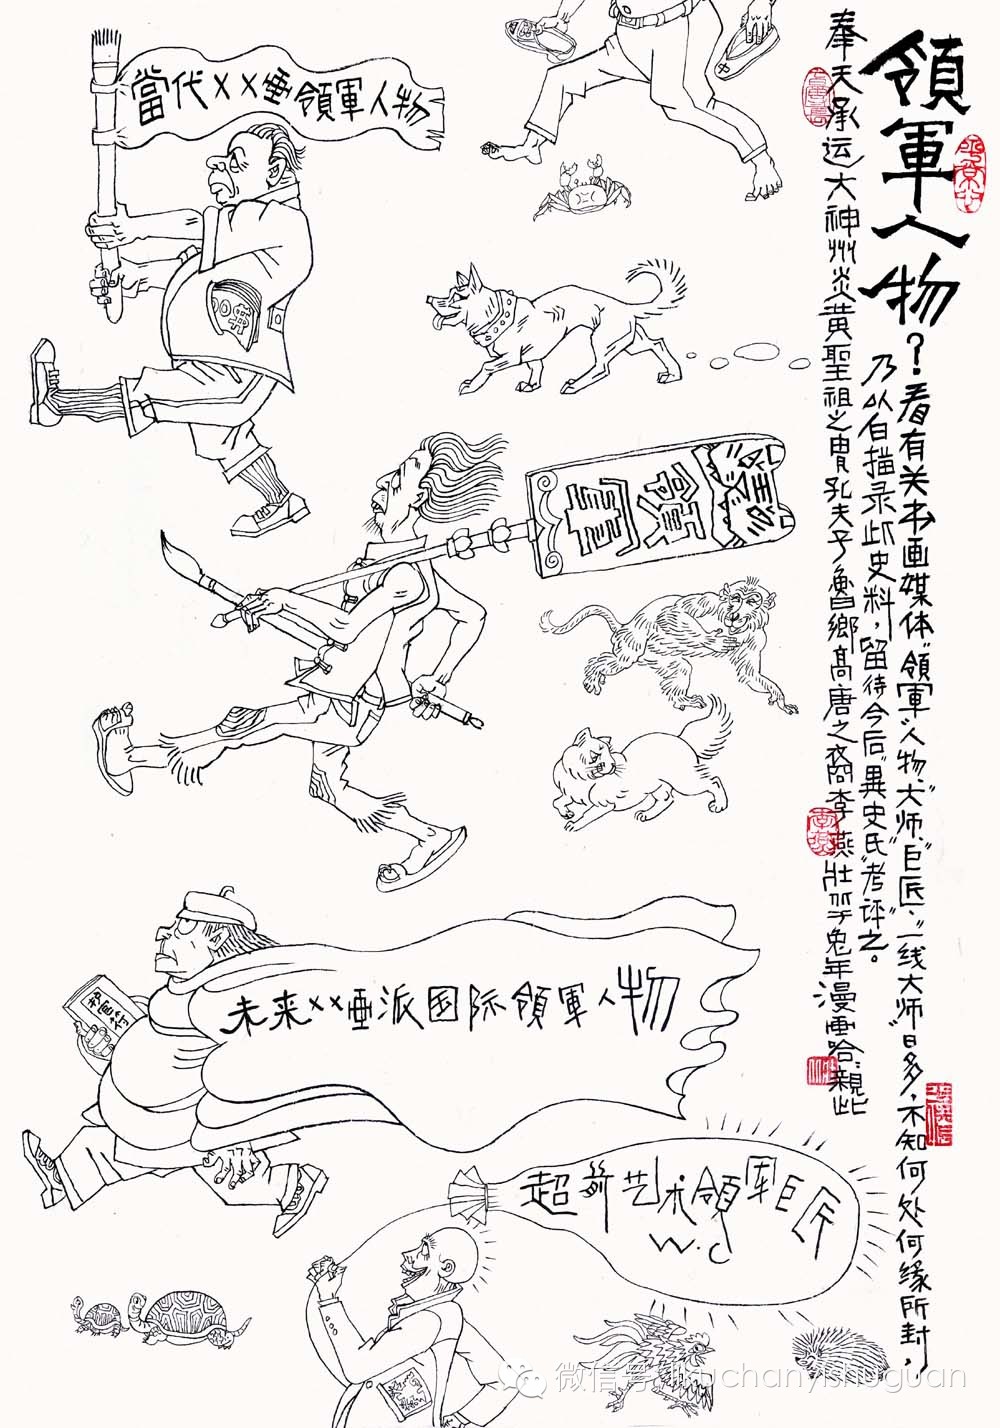 領軍人物？
看有关书画媒体“領軍”人物、“大师”、“巨匠”、“一线大师”日多，不知何处何缘所封，
乃以白描录此史料，留待今后“異史氏”考评之。
奉天承运大神州炎黄聖祖之胄孔夫子魯鄉高唐之裔李燕壯
兔年漫画
當代××画領軍人物
領軍
未来××画派国际領軍人物
超 艺术領军巨匠
W.C
微信号: kuchanyishuguan